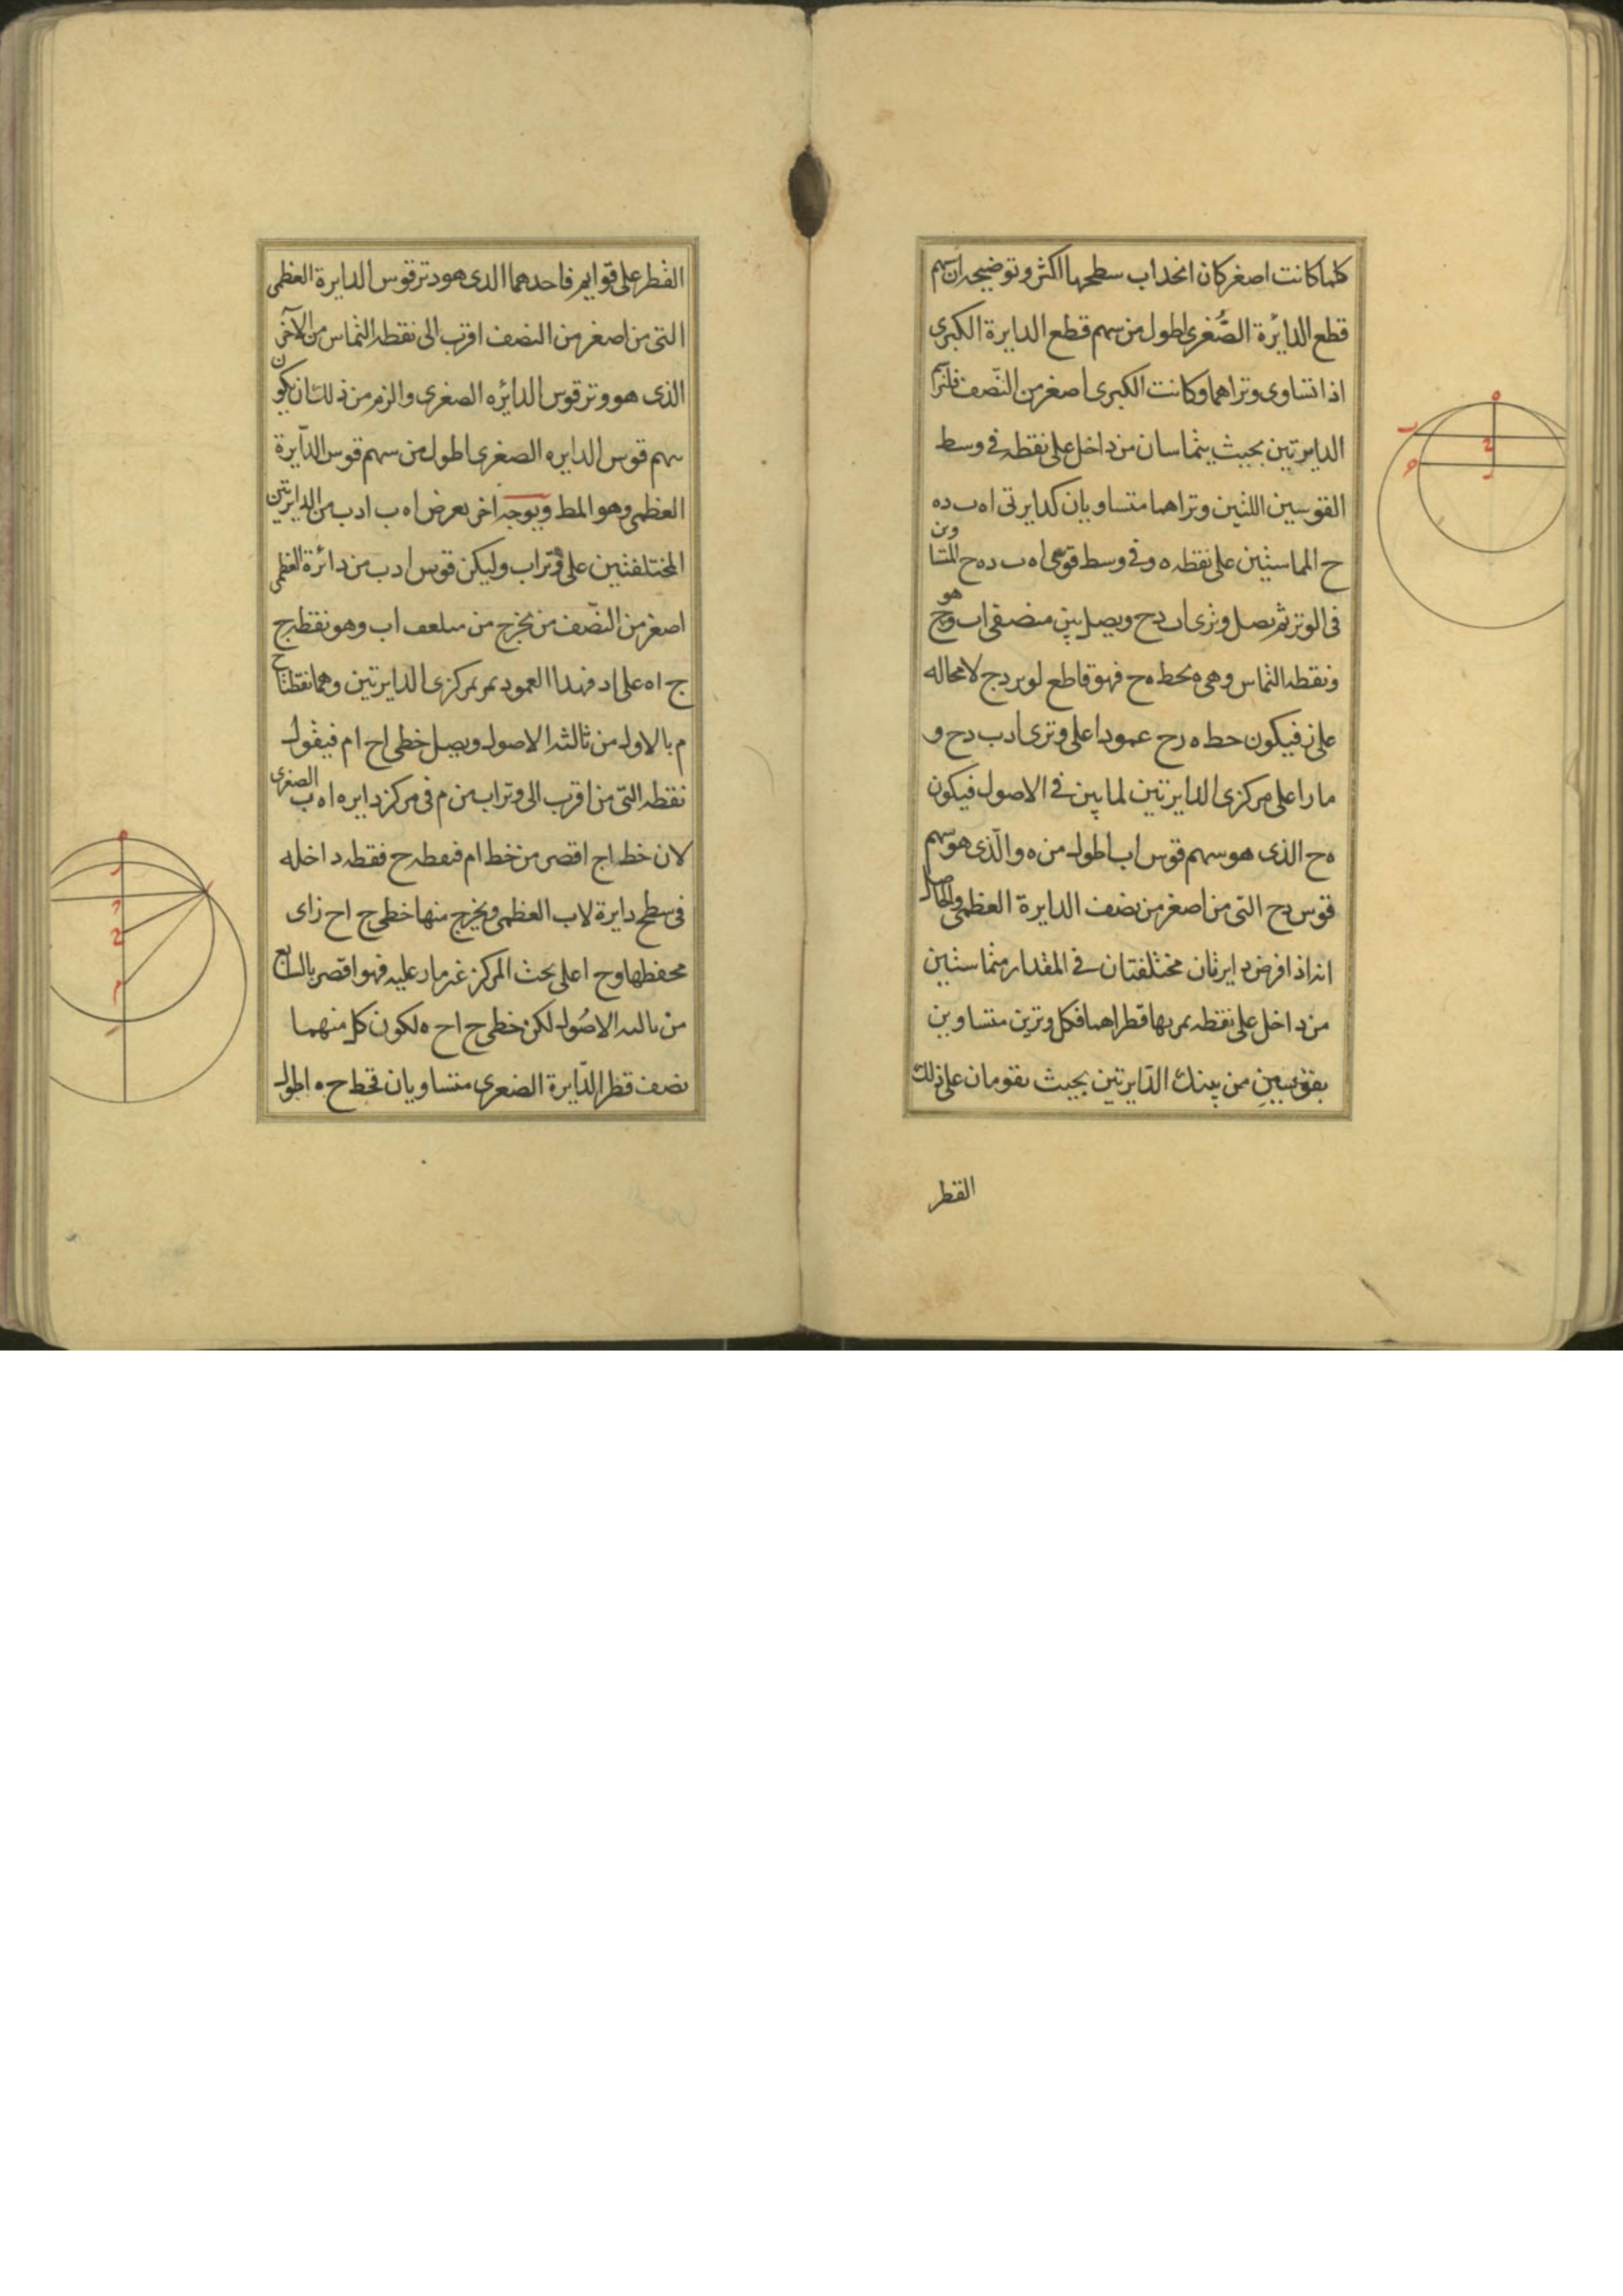 كلما كانت اصغر كان انحداب سطحها اكثر وتوضيحه ان سهم
قطع الدائرة الصُّغرى اطول من سهم قطع الدايرة الكبرى
اذا تساوى وتراهما وكانت الكبرى اصغر من النّصف فلنرسم
الدايرتين بحيث يتماسان من داخل على نقطه فى وسط
القوسين اللتين وتراهما متساويان كدايرتى اه ب ده
ح المماستين على نقطه ه وفى وسط قوسى اه ب ده ح المتساوين
فى الوتر ثم نصل وترى اب دح ويصل بين منصفى اب وهو ج
ونقطه التماس وهى ه بخط ه ح فهو قاطع لوتر دح لا محاله
على ز فيكون خط ه ز ح عمودا على وترى ادب دح و
مارا على مركزى الدايرتين لما بين فى الاصول فيكون
ه ح الذى هو سهم قوس اب اطول من ه والّذى هو سهم
قوس دح التى من اصغر من نصف الدايرة العظمى والحاصل
انه اذا فرض دايرتان مختلفتان فى المقدار متماستين
من داخل على نقطه يمر بها قطراهما فكل وترين متساوين
بقوسين من تينك الدّايرتين بحيث يقومان على ذلك
القطر
القطر على قوايم فاحدهما الذى هو وتر قوس الدايرة العظمى
التى من اصغر من النصف اقرب الى نقطه التماس من الآخر
الذى هو وتر قوس الدائره الصغرى والزم من ذلك ان يكون
سهم قوس الدايره الصغرى اطول من سهم قوس الدّايرة
العظمى وهو المط وبوجه اخر نعرض اه ب ادب من الدايرتين
المختلفتين على وتر اب وليكن قوس ادب من دائرة العظمى
اصغر من النّصف من نخرج من اب وهو نقطه ج
ج اه على اد فهذا العمود يمر بمركزى الدايرتين وهما نقطتا ح
م بالاول من ثالثه الاصول ويصل خطى اح ام فيقول
نقطه التى من اقرب الى وتر اب من م فى مركز دايره اه ب الصغرى
لان خط اح اقصر من خط ام فنقطه ح فقطه داخله
فى سطح دايرة لاب العظمى ويخرج منها خطى ح اح زاى
محفظها وح اعلى بحث المركز غير مار عليه فهو اقصر بالسابع
من الاصُول لكن خطى ح اح ه لكون كل منهما
نصف قطر الدّايرة الصغرى متساويان فخط ح ه اطول